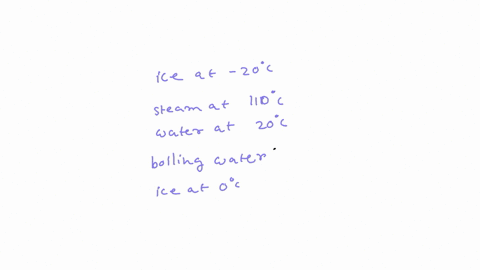 ice at -20°c
steam at 110°c
water at 20°c
boiling water
ice at 0°c